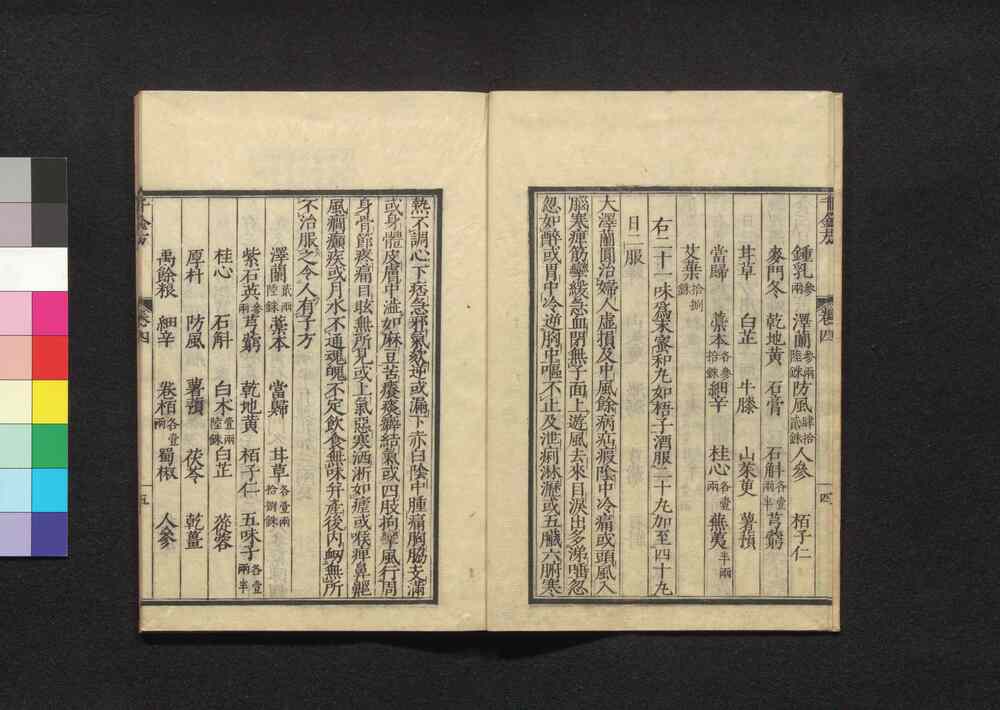 千金方 卷四 四
鍾乳參兩 澤蘭參兩陸銖 防風肆拾貳銖 人參 栢子仁
麥門冬 乾地黃 石膏 石斛各壹兩半 芎藭
甘草 白芷 牛膝 山茱萸 薯蕷
當歸 藁本各參拾銖 細辛 桂心各壹兩 蕪荑半兩
艾葉拾捌銖
右二十一味爲末蜜和丸如梧子酒服二十丸加至四十丸
日二服
大澤蘭圓治婦人虛損及中風餘病疝瘕陰中冷痛或頭風入
腦寒痺筋攣緩急血閉無子面上遊風去來目淚出多涕唾忽
忽如醉或胃中冷逆胸中嘔不止及泄痢淋瀝或五臟六腑寒
熱不調心下痞急邪氣欬逆或漏下赤白陰中腫痛胸脇支滿
或身體皮膚中澁如麻豆苦癢痰癖結氣或四肢拘攣風行周
身骨節疼痛目眩無所見或上氣惡寒洒淅如瘧或喉痺鼻齆
風癇癲疾或月水不通魂魄不定飲食無味并產後內衂無所
不治服之令人有子方
澤蘭貳兩陸銖 藁本 當歸 甘草各壹兩拾捌銖
紫石英參兩 芎藭 乾地黃 栢子仁 五味子各壹兩半
桂心 石斛 白朮壹兩陸銖 白芷 蓯蓉
厚朴 防風 薯蕷 茯苓 乾薑
禹餘粮 細辛 卷栢各壹兩 蜀椒 人參
千金方 卷四 五